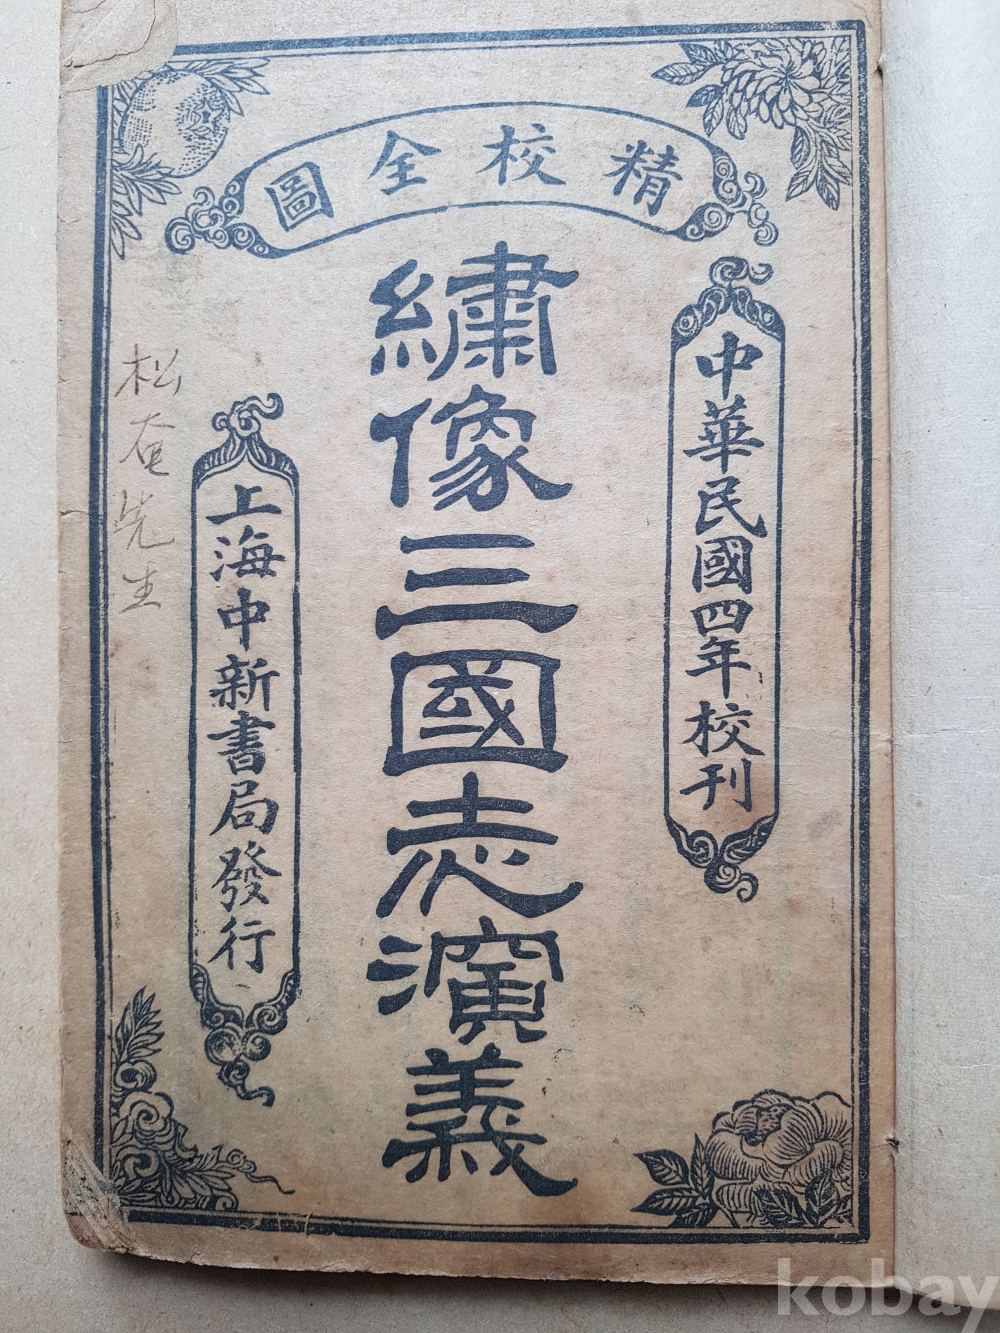 精校全圖
中華民國四年校刊
繡像三國志演義
上海中新書局發行
松奄先生
kobay